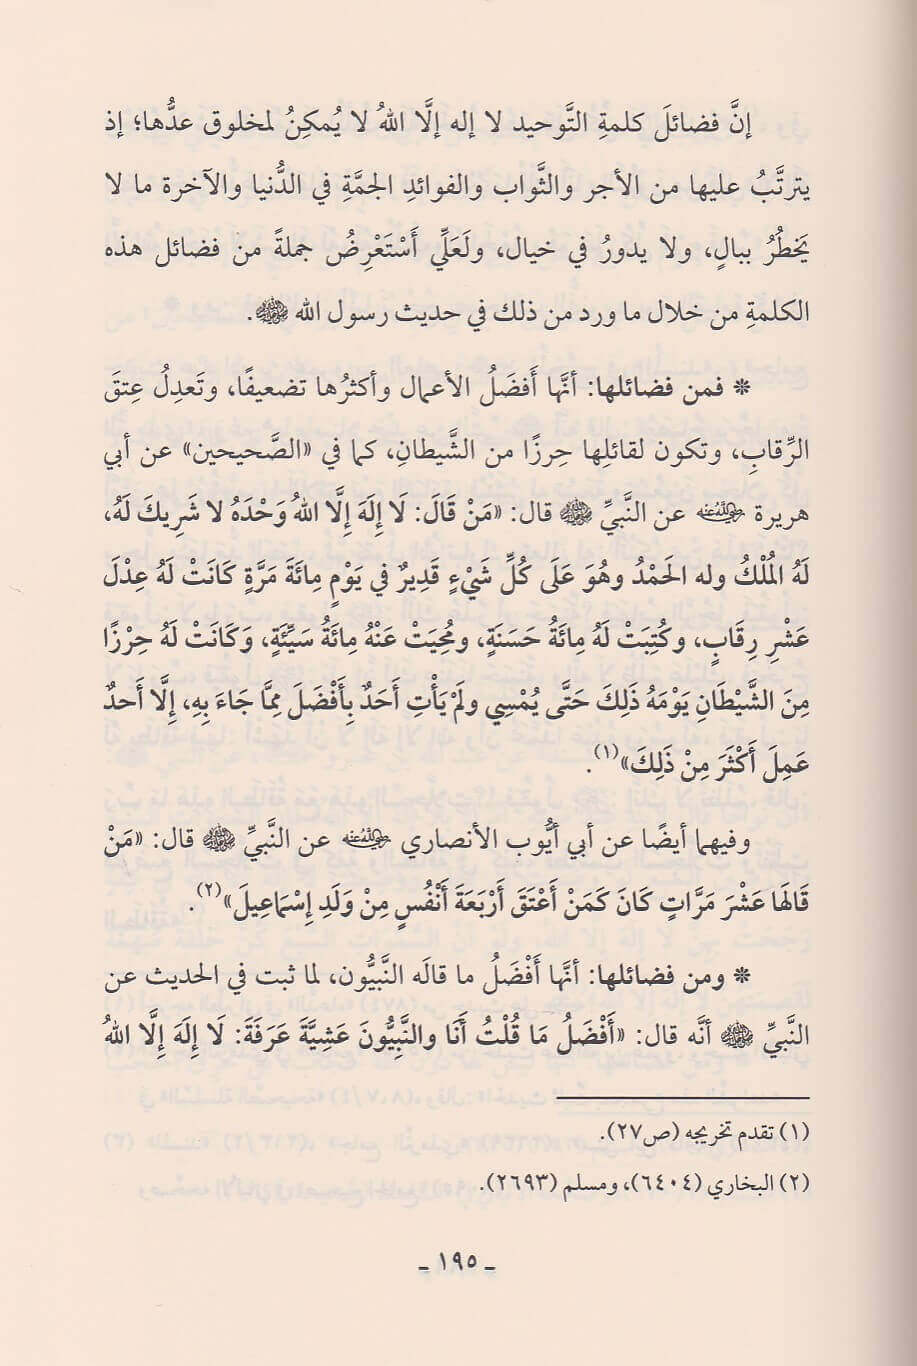 إنَّ فضائلَ كلمةِ التَّوحيد لا إله إلَّا اللهُ لا يُمكِنُ لمخلوق عدُّها؛ إذ
يترتَّبُ عليها من الأجر والثَّواب والفوائدِ الجمَّةِ في الدُّنيا والآخرة ما لا
يَخطُرُ ببالٍ، ولا يدورُ في خيال، ولَعَلِّي أَسْتَعْرِضُ جملةً من فضائل هذه
الكلمةِ من خلال ما ورد من ذلك في حديث رسول الله ﷺ.
* فمن فضائلها: أنَّها أَفضَلُ الأعمال وأكثرُها تضعيفًا، وتَعدِلُ عِتقَ
الرِّقابِ، وتكون لقائلِها حِرزًا من الشَّيطانِ، كما في «الصَّحيحين» عن أبي
هريرة رضي الله عنه عن النَّبيِّ ﷺ قال: «مَنْ قَالَ: لَا إِلَهَ إِلَّا اللهُ وَحْدَهُ لا شَرِيكَ لَهُ،
لَهُ المُلْكُ وله الحَمْدُ وهُوَ عَلَى كُلِّ شَيْءٍ قَدِيرٌ في يَوْمٍ مِائَةَ مَرَّةٍ كَانَتْ لَهُ عِدْلَ
عَشْرِ رِقَابٍ، وكُتِبَتْ لَهُ مِائَةُ حَسَنَةٍ، ومُحِيَتْ عَنْهُ مِائَةُ سَيِّئَةٍ، وَكَانَتْ لَهُ حِرْزًا
مِنَ الشَّيْطَانِ يَوْمَهُ ذَلِكَ حَتَّى يُمْسِي ولَمْ يَأْتِ أَحَدٌ بِأَفْضَلَ مِمَّا جَاءَ بِهِ، إِلَّا أَحدٌ
عَمِلَ أَكْثَرَ مِنْ ذَلِكَ»(١).
وفيهما أيضًا عن أبي أيُّوب الأنصاري رضي الله عنه عن النَّبيِّ ﷺ قال: «مَنْ
قَالهَا عَشْرَ مَرَّاتٍ كَانَ كَمَنْ أَعْتَقَ أَرْبَعَةَ أَنْفُسٍ مِنْ وَلَدِ إِسْمَاعِيلَ»(٢).
* ومن فضائلها: أنَّها أَفْضَلُ ما قالَه النَّبيُّون، لما ثبت في الحديث عن
النَّبيِّ ﷺ أنَّه قال: «أَفْضَلُ مَا قُلْتُ أَنَا والنَّبِيُّونَ عَشِيَّةَ عَرَفَةَ: لَا إِلَهَ إِلَّا اللهُ
(١) تقدم تخريجه (ص٢٧).
(٢) البخاري (٦٤٠٤)، ومسلم (٢٦٩٣).
- ١٩٥ -